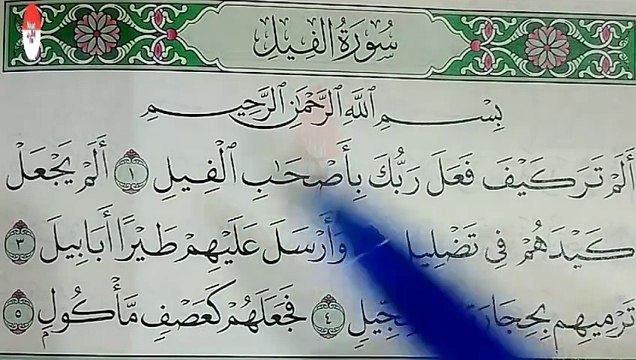 سُورَةُ الْفِيلِ
بِسْمِ اللَّهِ الرَّحْمَٰنِ الرَّحِيمِ
أَلَمْ تَرَ كَيْفَ فَعَلَ رَبُّكَ بِأَصْحَابِ الْفِيلِ ١ أَلَمْ يَجْعَلْ
كَيْدَهُمْ فِي تَضْلِيلٍ وَأَرْسَلَ عَلَيْهِمْ طَيْرًا أَبَابِيلَ ٣
تَرْمِيهِم بِحِجَارَةٍ ٤ فَجَعَلَهُمْ كَعَصْفٍ مَّأْكُولٍ ٥